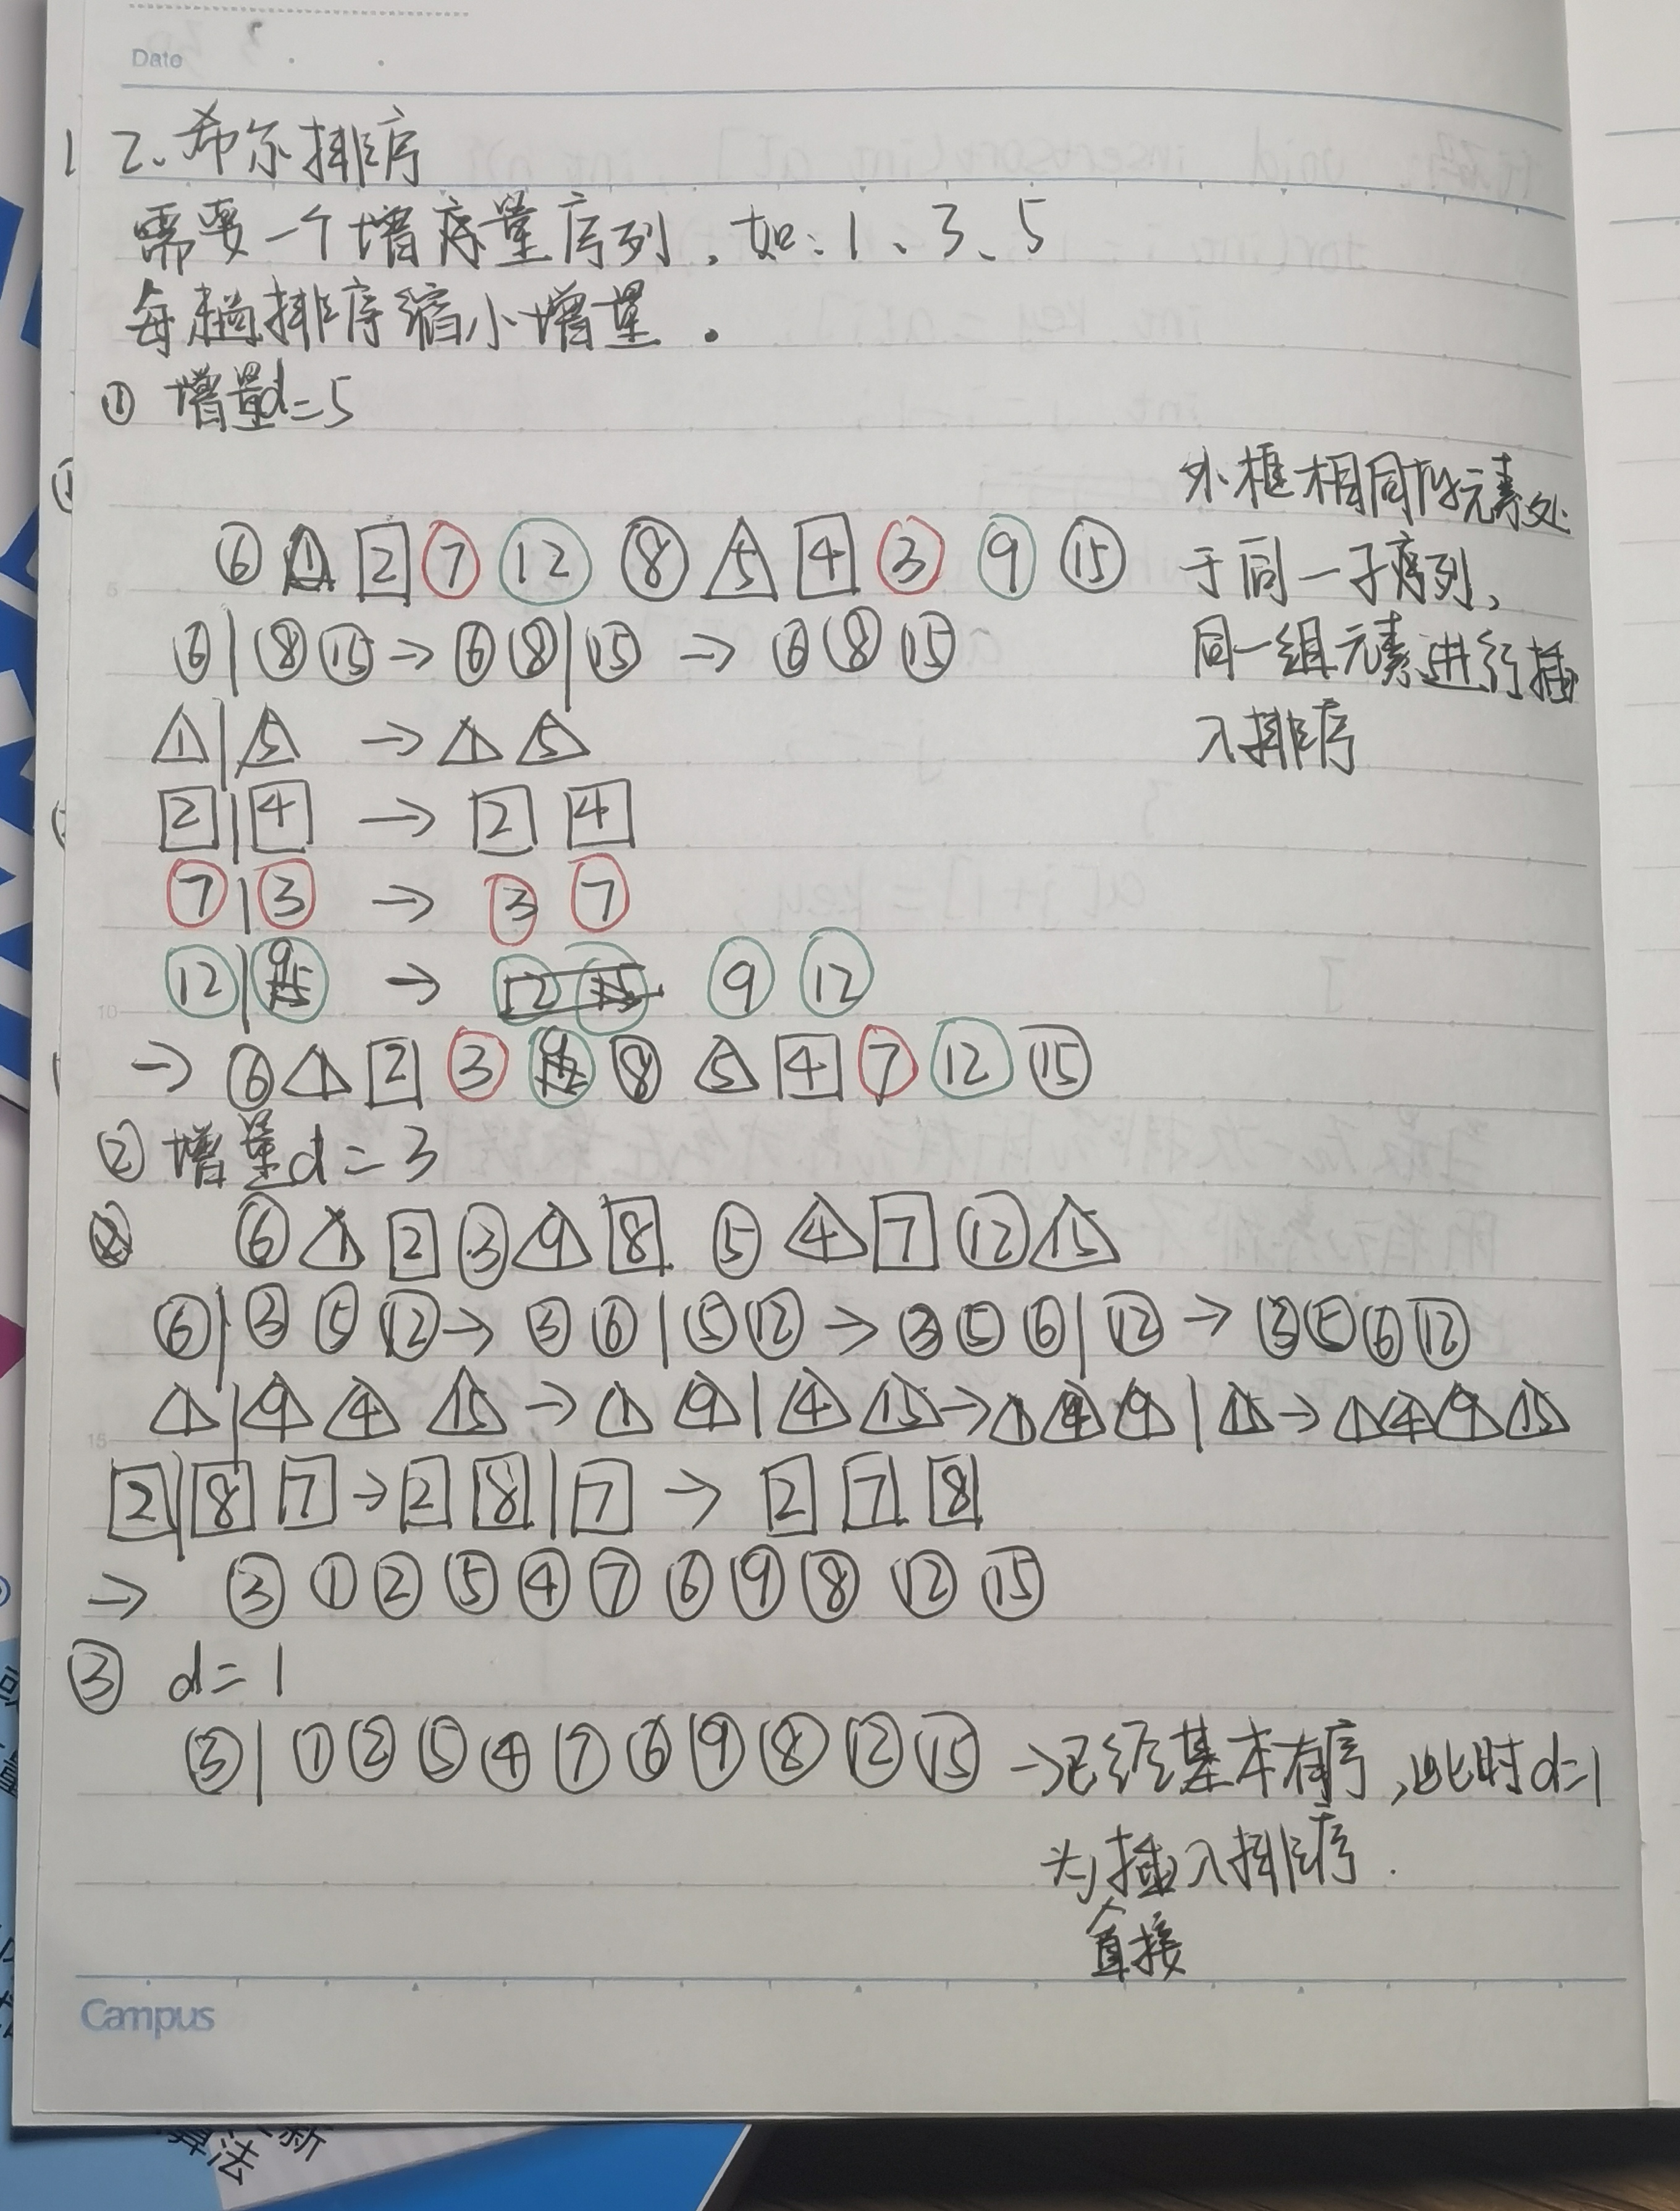 Date
2、希尔排序
需要一个增量序列,如:1、3、5
每趟排序缩小增量。
① 增量d=5
外框相同的元素处
于同一子序列,
同一组元素进行插
入排序
6 1 2 7 12 8 5 4 3 9 15
6 | 8 15 → 6 8 | 15 → 6 8 15
1 | 5 → 1 5
2 | 4 → 2 4
7 | 3 → 3 7
12 | 9 → 9 12
→ 6 1 2 3 8 5 4 7 12 15
② 增量d=3
6 1 2 3 9 8 5 4 7 12 15
6 | 3 5 12 → 3 6 | 5 12 → 3 5 6 | 12 → 3 5 6 12
1 | 9 4 15 → 1 9 | 4 15 → 1 4 9 | 15 → 1 4 9 15
2 | 8 7 → 2 8 | 7 → 2 7 8
→ ③ ① ② ⑤ ④ ⑦ ⑥ ⑨ ⑧ ⑫ ⑮
③ d=1
③ | ① ② ⑤ ④ ⑦ ⑥ ⑨ ⑧ ⑫ ⑮ →已经基本有序,此时d=1
为插入排序.
直接
5
10
15
Campus
算法
新